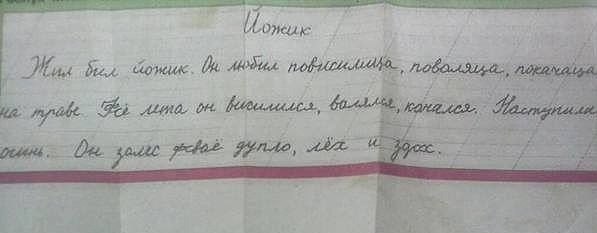 Йожик
Жил был йожик. Он любил повисилица, поваляца, покачаца
на траве. Фсё лета он висилился, валялся, качался. Наступила
осинь. Он залес фсваё дупло, лёх и здох.